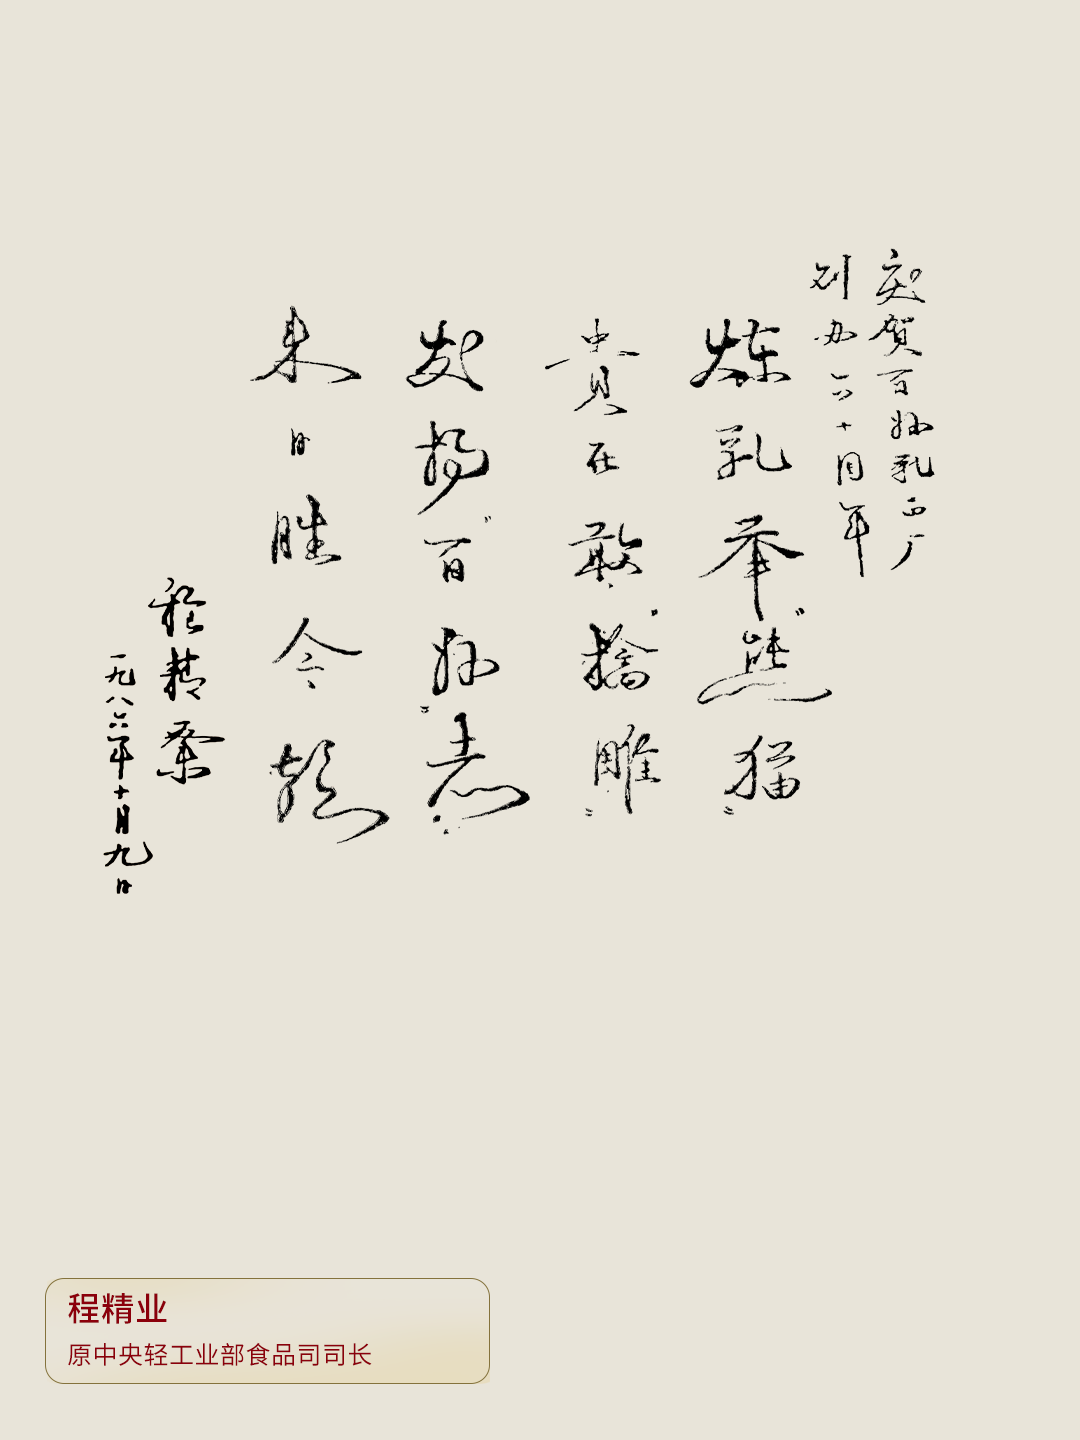 庆贺百好乳品厂
创办六十周年
炼乳举"熊猫"
贵在敢"擒雕"
发扬"百好"志
来日胜今朝
程精業
一九八六年十月九日
程精业
原中央轻工业部食品司司长